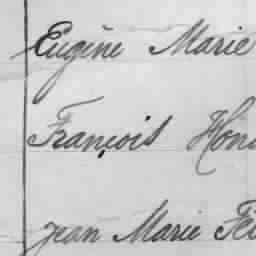 Eugène Marie
François Hono
Jean Marie Fél